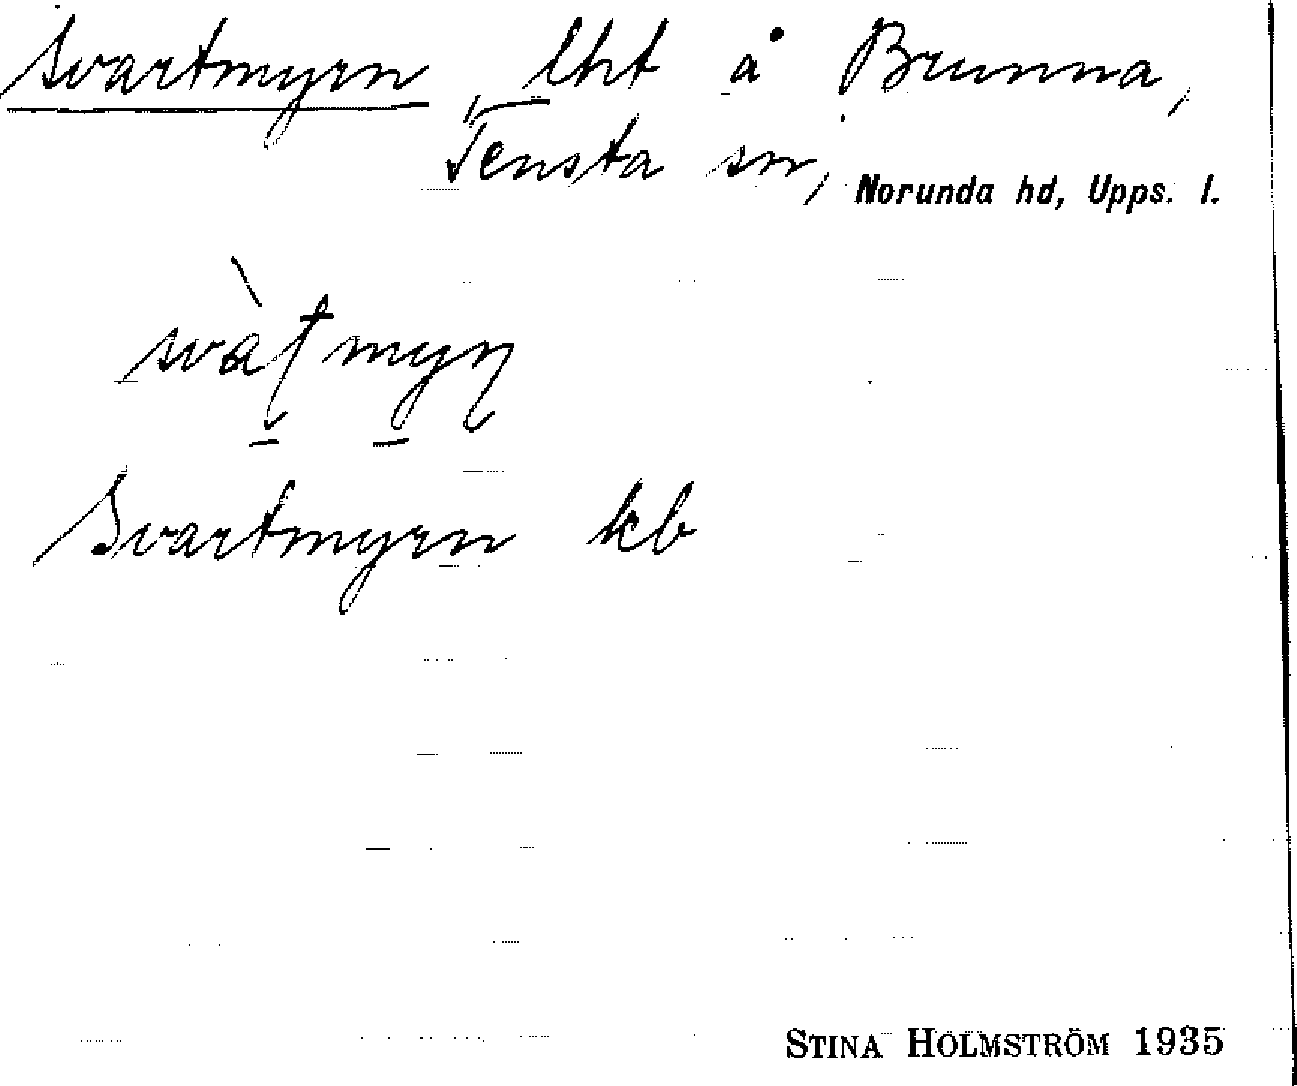 Svartmyrn, lht å Brunna,
Tensta sn, Norunda hd, Upps. l.
svàʈmyɳ
Svartmyrn kb
STINA HOLMSTRÖM 1935